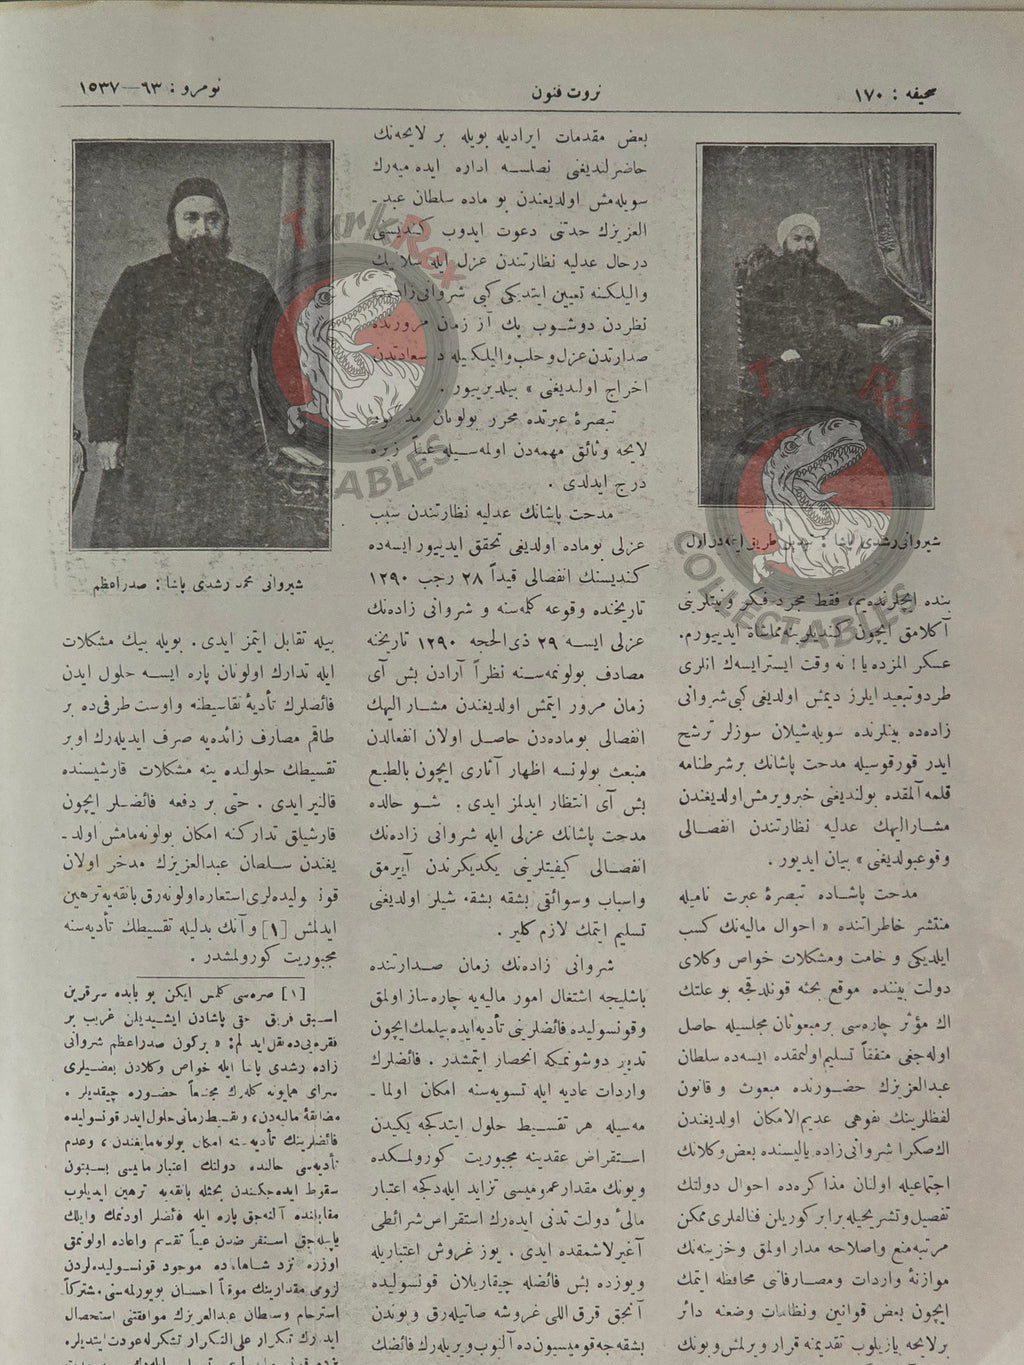 صحیفه : ١٧٠
ثروت فنون
نومرو : ٦٣—١٥٣٧
شیروانی رشدی پاشا : تبدیل طریق ایتمدن اول
بنده ایچلرنده‌یم، فقط مجرد فکر ونیتلرینی
آکلامق ایچون کندیلرینه مماشاة ایدییورم.
عسکر المزده یا! نه وقت ایسترایسه‌ك انلری
طرد و تبعید ایلرز دیمش اولدیغی کبی شروانی
زاده‌ده بیلرنده سویله‌شیلان سوزلر ترشح
ایدر قورقوسیله مدحت پاشانك برشرطنامه
قلمه آلمقده بولندیغنی خبرویرمش‌اولدیغندن
مشارالیهك عدلیه نظارتندن انفصالی
وقوعبولدیغی » بیان ایدیور .
مدحت پاشاده تبصرهٔ عبرت نامیله
منتشر خاطراتنده « احوال مالیه‌نك کسب
ایلدیکی وخامت ومشکلات خواص وکلای
دولت بیننده موقع بحثه قونلدقجه بو علتك
اك مؤثر چاره‌سی برمبعوثان مجلسیله حاصل
اوله‌جغی متفقاً تسلیم‌اولنمقده ایسه‌ده سلطان
عبدالعزیزك حضورنده مبعوث و قانون
لفظلرینك تفوهی عدیم‌الامکان اولدیغندن
اك‌صکرا شروانی‌زاده یالیسنده بعض وکلانك
اجتماعیله اولنان مذاکره‌ده احوال دولتك
تفصیل وتشریحیله برابر کوریلن فنالقلری ممکن
مرتبه منع واصلاحه مدار اولمق وخزینه‌نك
موازنهٔ واردات ومصارفاتی محافظه ایتمك
ایچون بعض قوانین ونظامات وضعنه دائر
برلایحه یازیلوب تقدیمنه قرار ویرلمش‌وبونك
بعض مقدمات ایرادیله بویله بر لایحه‌نك
حاضرلندیغنی نصلسه اداره ایده‌میه‌رك
سویله‌مش اولدیغندن بو ماده سلطان عبد-
العزیزك حدتنی دعوت ایدوب کندیسنی
درحال عدلیه نظارتندن عزل ایله سلانیك
والیلکنه تعیین ایتدیکی کبی شروانی‌زاده‌یی
نظردن دوشوب پك آز زمان مرورنده
صدارتدن‌عزل و حلب والیلکیله درسعادتدن
اخراج اولدیغی » بیلدیرییور .
تبصرهٔ عبرتده محرر بولونان مذکور
لایحه وثائق مهمه‌دن اولمه‌سیله عیناً زیره
درج ایدلدی .
مدحت پاشانك عدلیه نظارتندن سبب
عزلی بوماده اولدیغی تحقق ایدییور ایسه‌ده
کندیسنك انفصالی قیداً ٢٨ رجب ١٢٩٠
تاریخنده وقوعه کلمه‌سنه و شروانی زاده‌نك
عزلی ایسه ٢٩ ذی‌الحجه ١٢٩٠ تاریخنه
مصادف بولونمه‌سنه نظراً آرادن بش آی
زمان مرور ایتمش اولدیغندن مشارالیهك
انفصالی بوماده‌دن حاصل اولان انفعالدن
منبعث بولونسه اظهار آثاری ایچون بالطبع
بش آی انتظار ایدلمز ایدی . شو حالده
مدحت پاشانك عزلی ایله شروانی زاده‌نك
انفصالی کیفیتلرینی یکدیکرندن آیرمق
واسباب وسوائقی بشقه بشقه شیلر اولدیغنی
تسلیم ایتمك لازم کلیر .
شروانی زاده‌نك زمان صدارتنده
باشلیجه اشتغال امور مالیه‌یه چاره‌ساز اولمق
وقونسولیده فائضلرینی تأدیه ایده‌بیلمك‌ایچون
تدبیر دوشونمکه انحصار ایتمشدر . فائضلرك
واردات عادیه ایله تسویه‌سنه امکان اولما-
مه‌سیله هر تقسیط حلول ایتدکجه یکیدن
استقراض عقدینه مجبوریت کورولمکده
وبونك مقدار عمومیسی تزاید ایله‌دکجه اعتبار
مالیٔ دولت تدنی ایده‌رك استقراض‌شرائطی
آغیرلاشمقده ایدی . یوز غروش اعتباریله
ویوزده بش فائضله چیقاریلان قونسولیده
آنجق قرق اللی غروشه صاتیله‌رق وبوندن
بشقه‌جه قومیسیون‌ده آلنوب ویریله‌رك فائضك
شیروانی محمد رشدی پاشا : صدراعظم
بیله تقابل ایتمز ایدی . بویله بیك مشکلات
ایله تدارك اولونان پاره ایسه حلول ایدن
فائضلرك تأدیهٔ تقاسیطنه واوست طرفی‌ده بر
طاقم مصارف زائده‌یه صرف ایدیله‌رك اوبر
تقسیطك حلولنده ینه مشکلات قارشیسنده
قالنیر ایدی . حتی بر دفعه فائضلر ایچون
قارشیلق تدارکنه امکان بولونه‌مامش اولد-
یغندن سلطان عبدالعزیزك مدخر اولان
قونسولیده‌لری استعاره‌اولونه‌رق بانقه‌یه ترهین
ایدلمش [١] وآنك بدلیله تقسیطك تأدیه‌سنه
مجبوریت کورولمشدر .
[١] صره‌سی کلمش ایکن بو بابده سرقرین
اسبق فریق حقی پاشادن ایشیدیلن غریب بر
فقره‌یی‌ده نقل ایدلم : « برکون صدراعظم شروانی
زاده رشدی پاشا ایله خواص وکلادن بعضیلری
سرای همایونه کله‌رك مجتمعاً حضوره چیقدیلر .
مضایقهٔ مالیه‌دن، وتقسیط زمانی حلول ایدر قونسولیده
فائضلرینك تأدیه‌سنه امکان بولونه‌مایغندن ، وعدم
تأدیه‌سی حالنده دولتك اعتبار مالیسی بستون
سقوط ایده‌جکندن بحثله بانقه‌یه ترهین ایدیلوب
مقابلنده آلنه‌جق پاره ایله فائضلر اودنمك وایلك
یاپیله‌جق استقراضدن عیناً تقدیم واعاده اولونمق
اوزره نزد شاهانه‌ده موجود قونسولیده‌لردن
لزومی مقدارینك موقتاً احسان بویورلمه‌سنی مشترکاً
استرحام وسلطان عبدالعزیزك موافقتنی استحصال
ایده‌رك تکرار علی‌التکرار تشکر له عودت ایتدیلر.
TurkRex
COLLECTABLES
TurkRex
COLLECTABLES